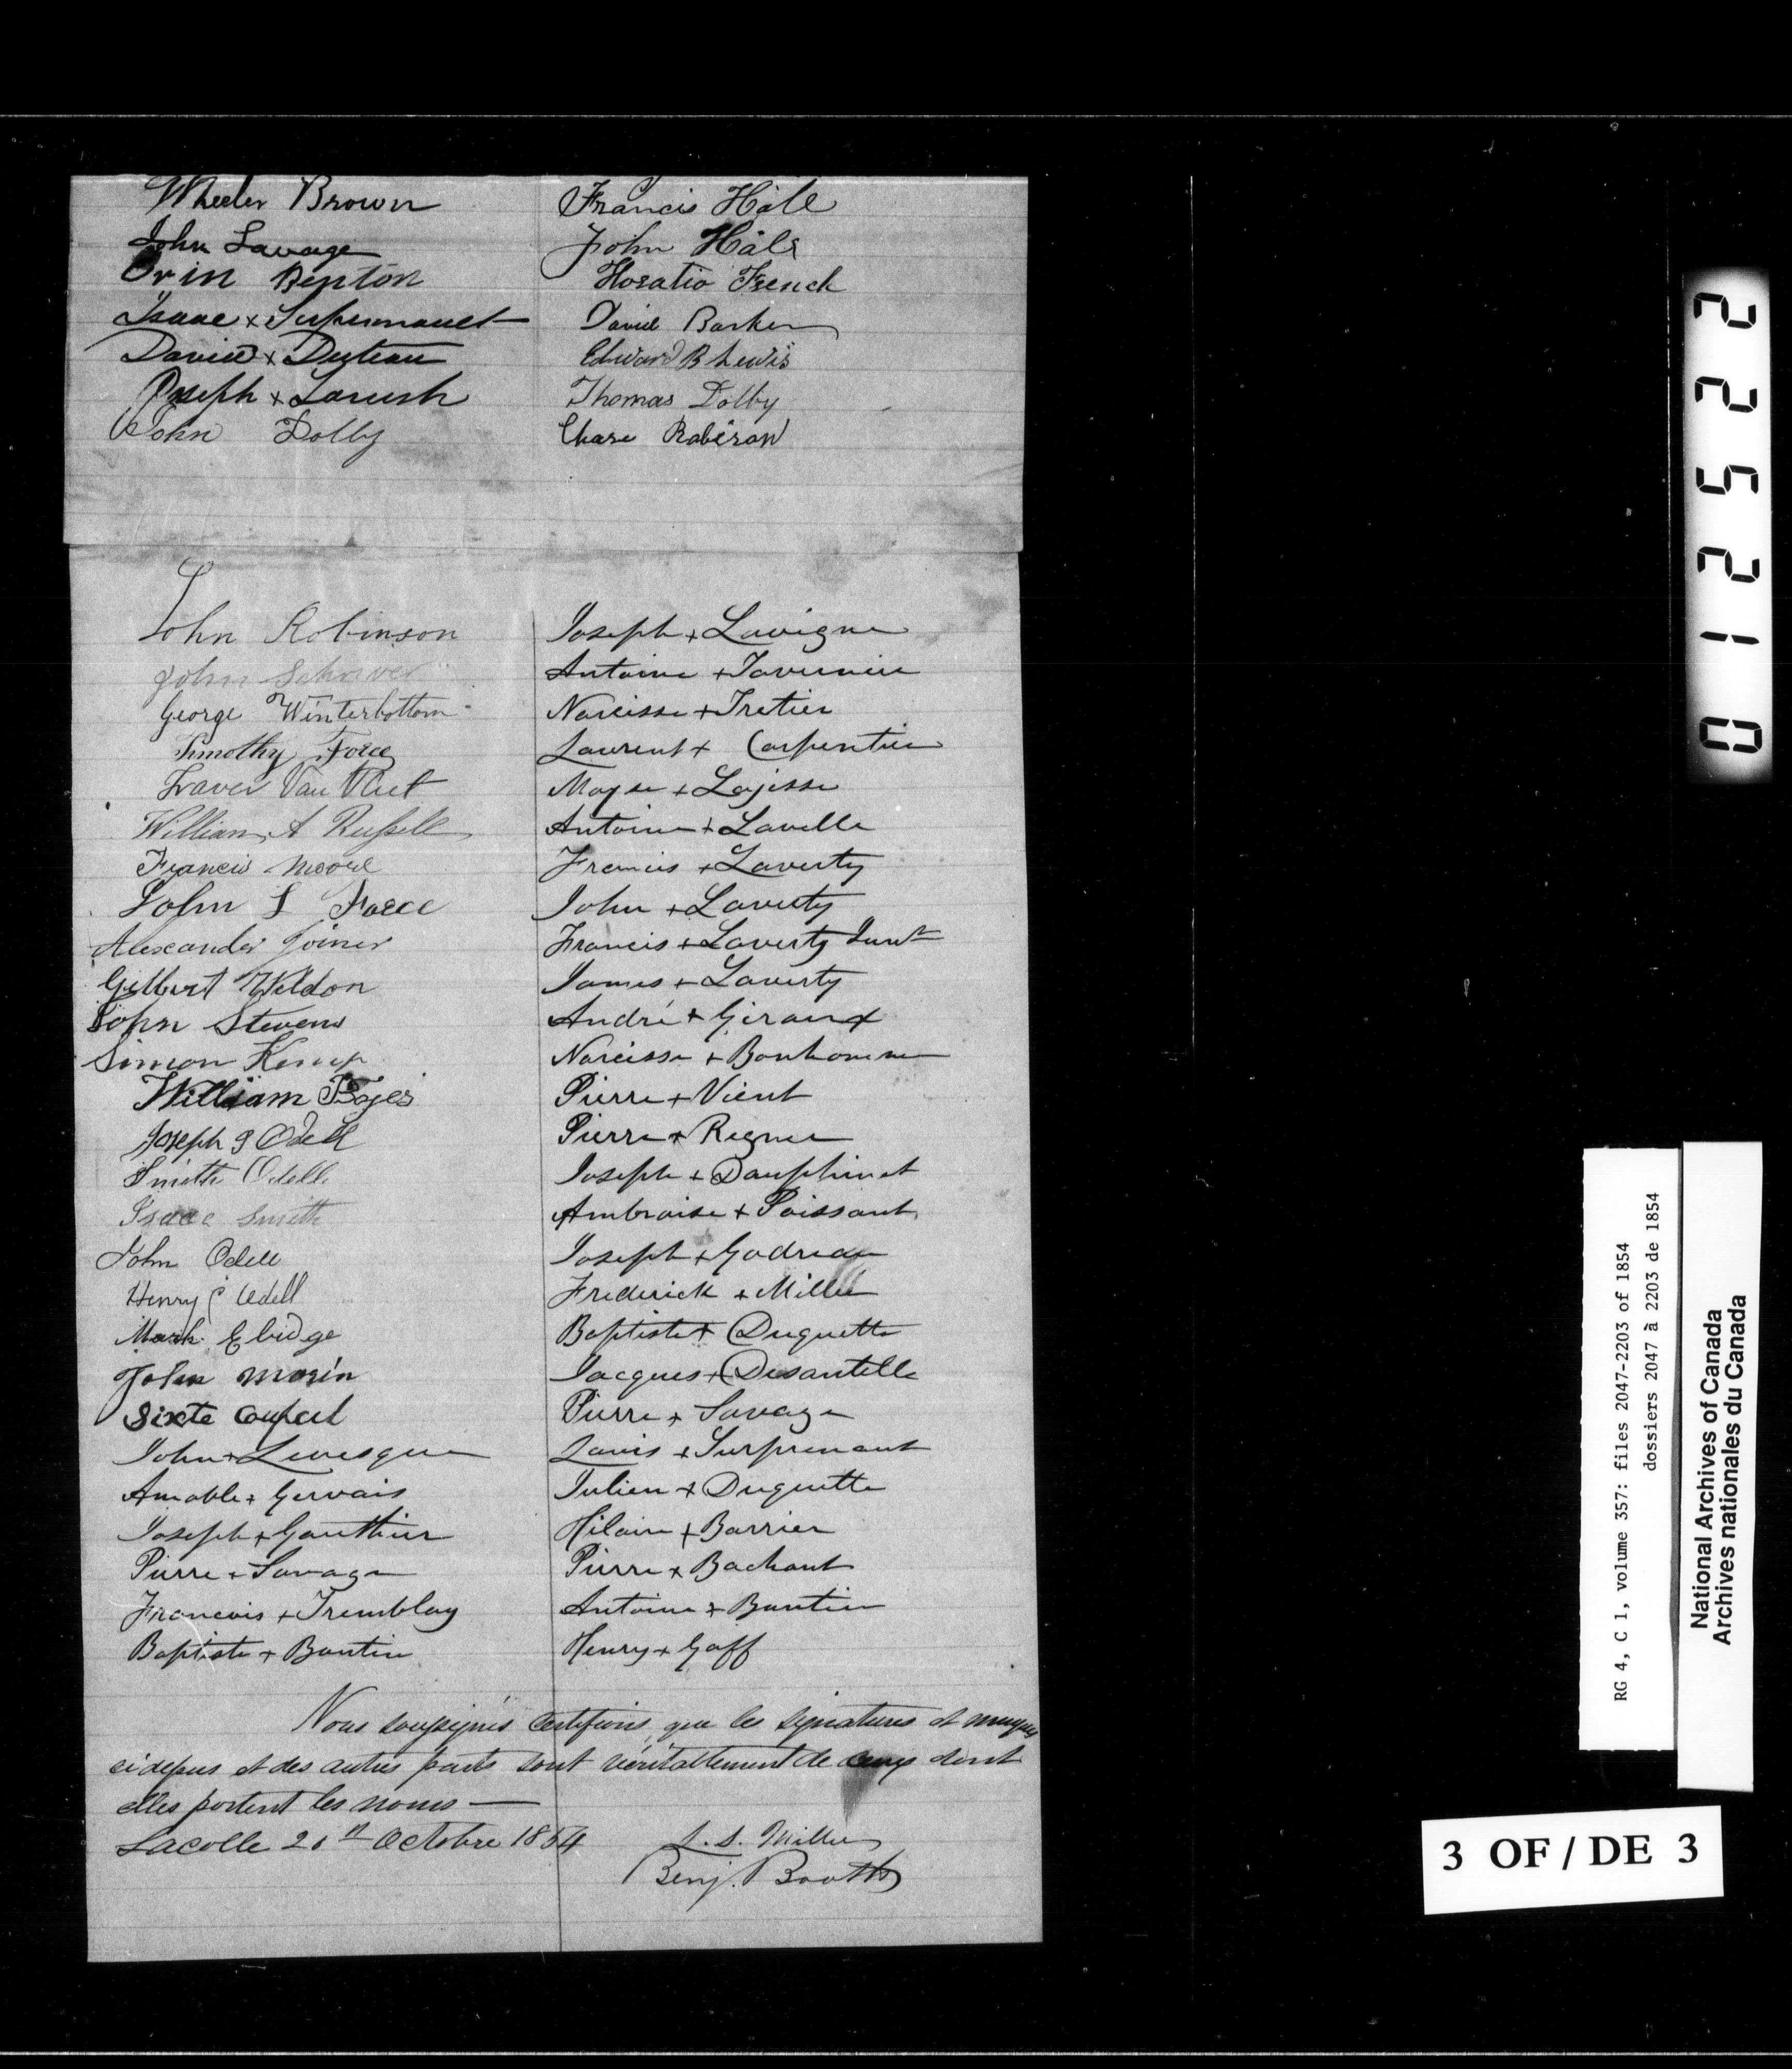 Wheeler Brown
John Savage
Orin Benton
Isaac x Surprenault
David x Duteau
Joseph x Larush
John Dolby
Francis Hale
John Hale
Horatio French
David Barker
Edward B Lewis
Thomas Dolby
Chase Robison
John Robinson
John Schriver
George Winterbottom
Timothy Force
Traver Van Vliet
William A Russell
Francis Moore
John S Force
Alexander Joiner
Gilbert Weldon
John Stevens
Simeon Kemp
William Boyes
Joseph J Odell
Smith Odell
Isaac Smith
John Odell
Henry C Odell
Mark Elridge
John Morin
Sixte Coupal
John + Levesque
Amable + Gervais
Joseph + Gauthier
Pierre + Savage
Francois + Tremblay
Baptiste + Bautin
Joseph + Lavigne
Antoine + Tavernier
Narcisse + Tretier
Laurent + Carpentier
Moyse + Lajisse
Antoine + Lavelle
Francis + Laverty
John + Laverty
Francis + Laverty Junr
James + Laverty
André + Giroux
Narcisse + Bonhomme
Pierre + Vient
Pierre + Regner
Joseph + Dauphinet
Ambroise + Poissant
Joseph + Godreau
Frederick + Millié
Baptiste + Duquette
Jacques + Desautelle
Pierre + Savage
Louis + Surprenant
Julien + Duquette
Hilaire + Barrier
Pierre + Bachant
Antoine + Bautin
Henry + Goff
Nous soussignés Certifions que les signatures et marques
ci dessus et des autres parts sont véritablement de ceux dont
elles portent les noms —
Lacolle 20 Octobre 1854
L. S. Miller
Benj. Booth
2 2 5 2 1 0
RG 4, C 1, volume 357: files 2047-2203 of 1854
dossiers 2047 à 2203 de 1854
National Archives of Canada
Archives nationales du Canada
3 OF / DE 3